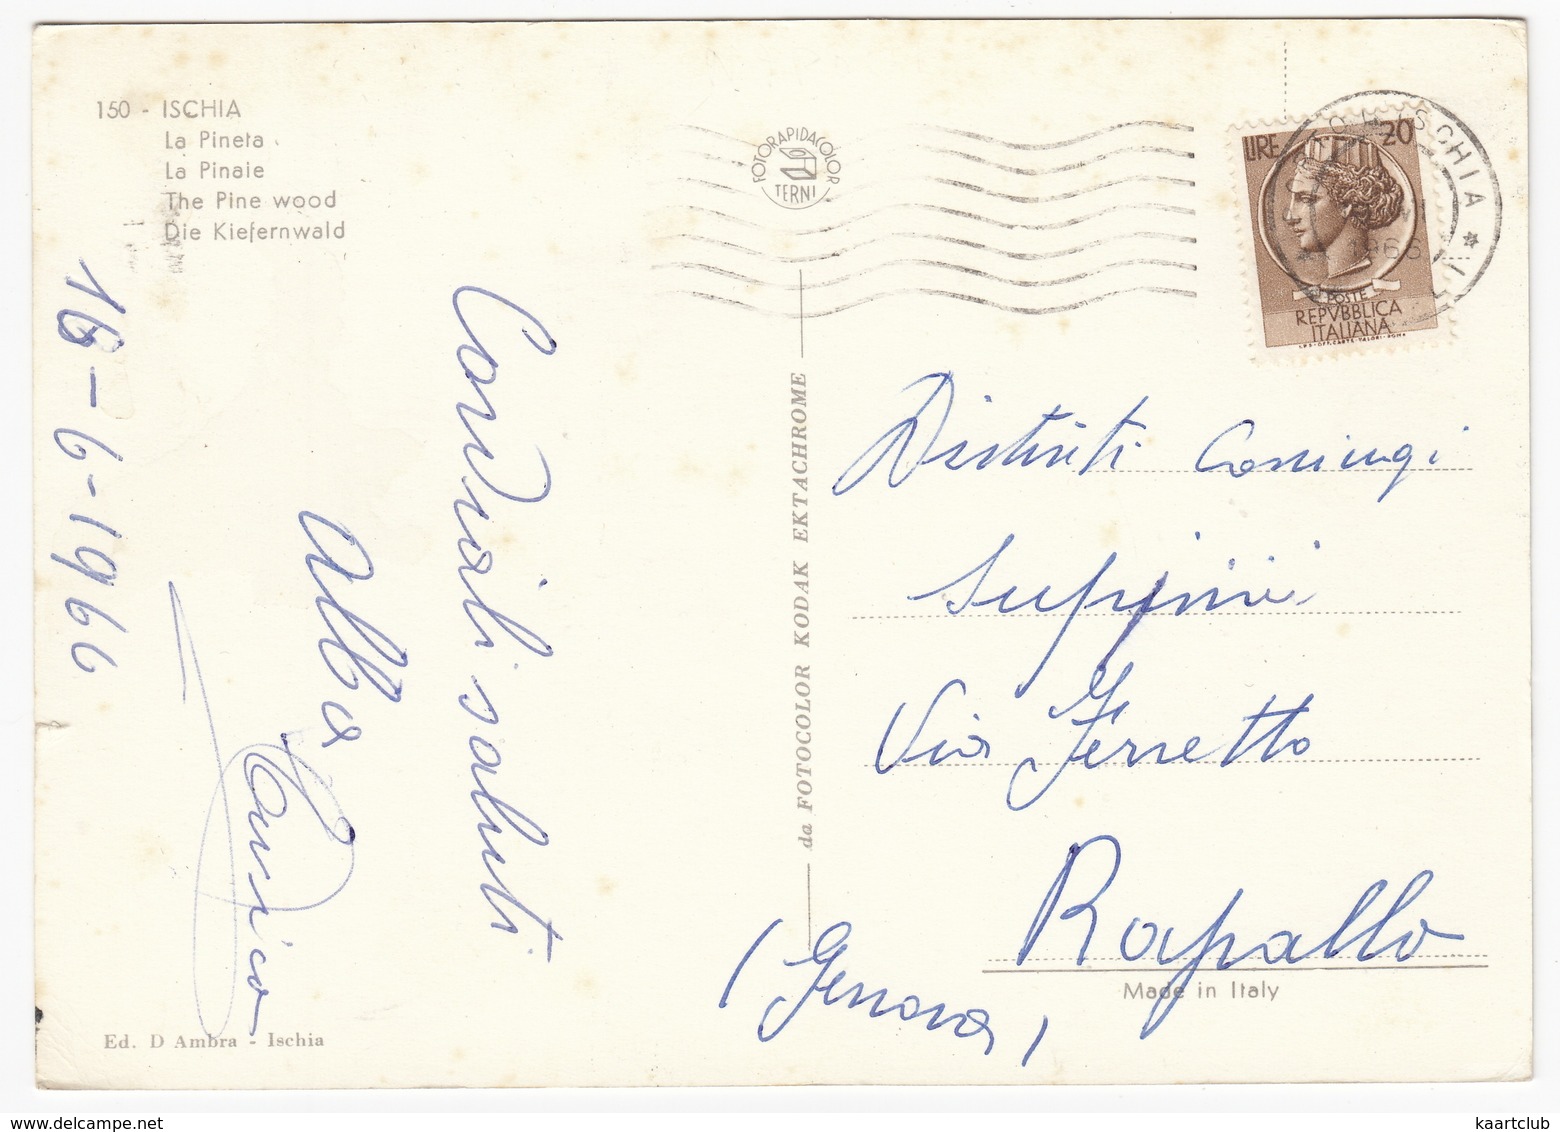 150 - ISCHIA
La Pineta
La Pinaie
The Pine wood
Die Kiefernwald
FOTORAPIDACOLOR
TERNI
LIRE 20
POSTE
REPVBBLICA
ITALIANA
I.P.S-OFF.CARTE-VALORI-ROMA
ISCHIA
1966
18-6-1966
Cordiali saluti
Alba
Enrico
da FOTOCOLOR KODAK EKTACHROME
Distinti Coniugi
Via Ferretto
Rapallo
(Genova)
Made in Italy
Ed. D Ambra - Ischia
kaartclub